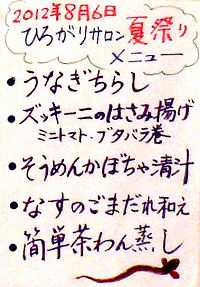 2012年8月6日
ひろがりサロン 夏祭り
メニュー
• うなぎちらし
• ズッキーニのはさみ揚げ
ミニトマト・ブタバラ巻
• そうめんかぼちゃ清汁
• なすのごまだれ和え
• 簡単茶わん蒸し